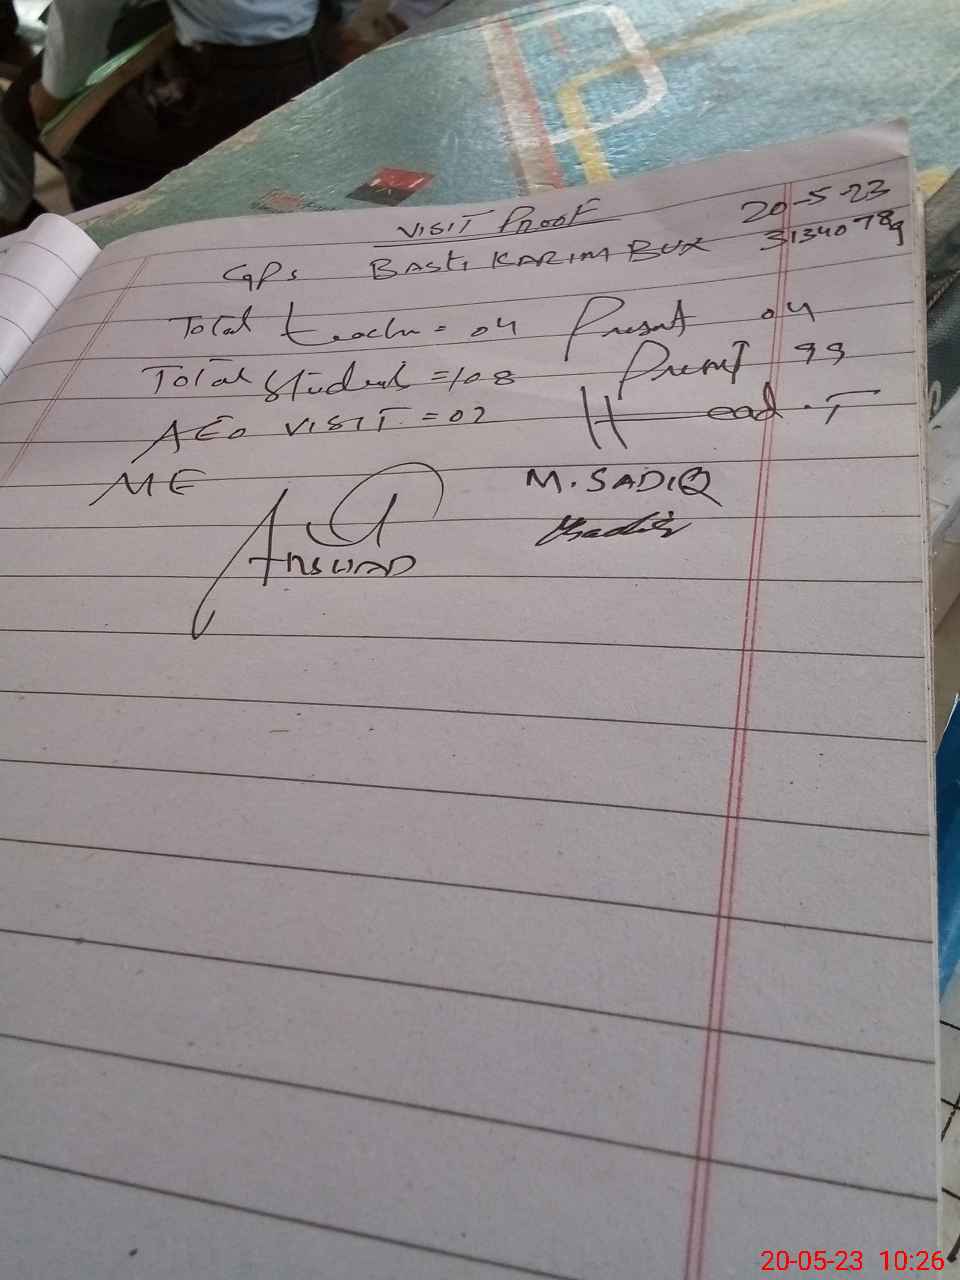 VISIT PROOF 20-5-23
GPs BASTI KARIM BUX 31340789
Total teacher = 04 Present 04
Total Student = 108 Present 99
AEO VISIT = 02 Head.T
ME M.SADIQ
ARSHAD Msadiq
20-05-23 10:26